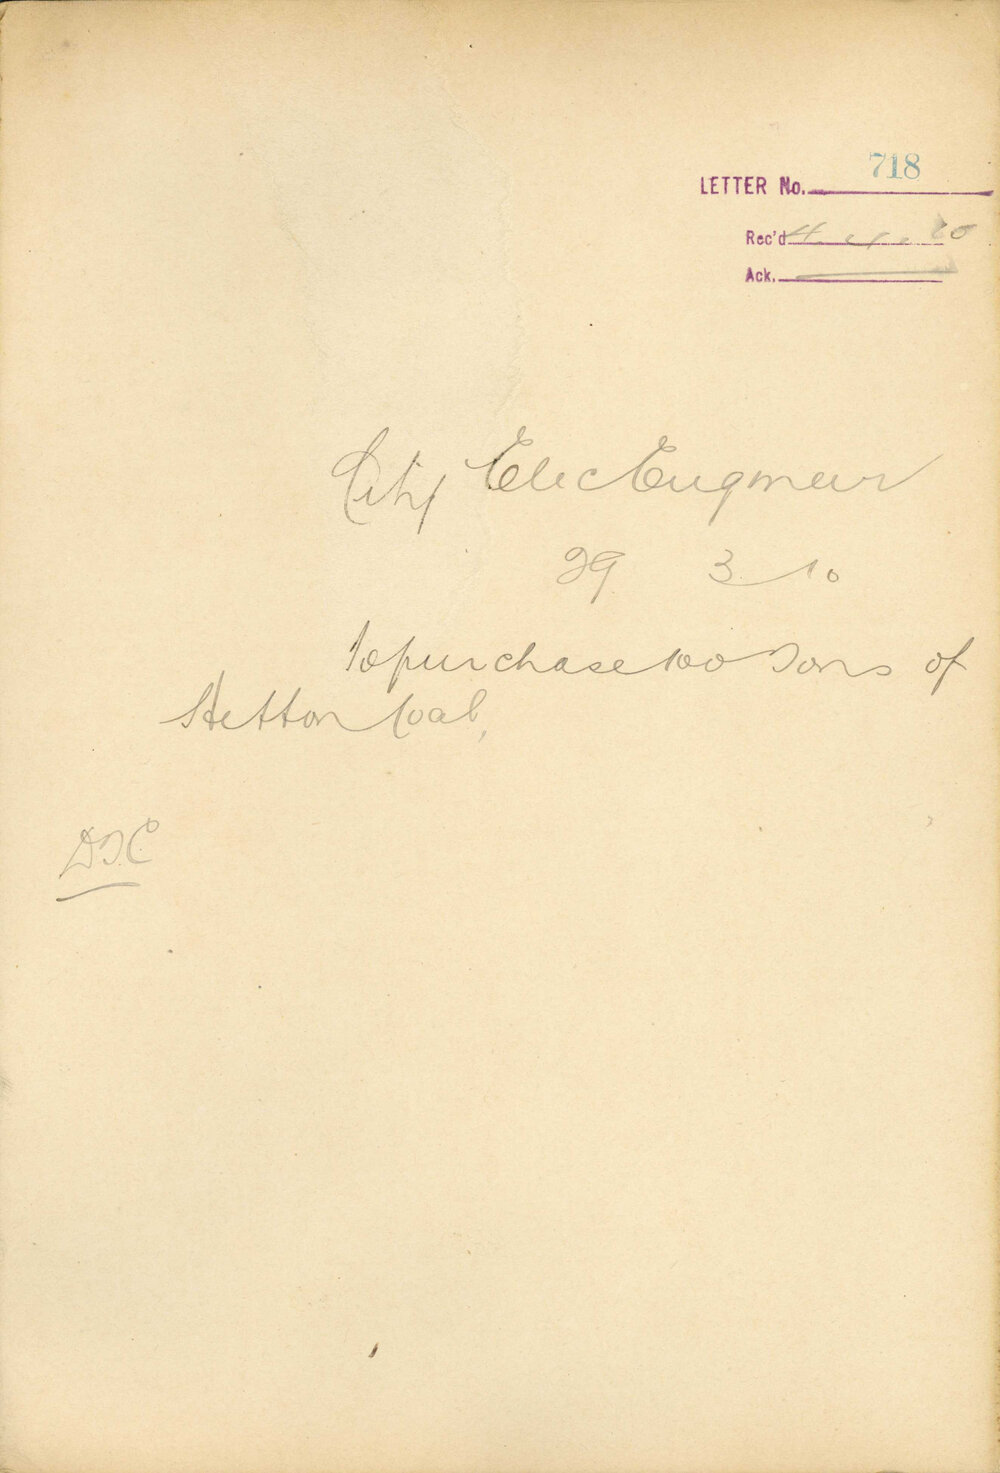 LETTER No. 718
Rec'd 4. 4. 10
Ack.
City Elec Engineer
29 3 10
To purchase 100 Tons of
Hetton Coal,